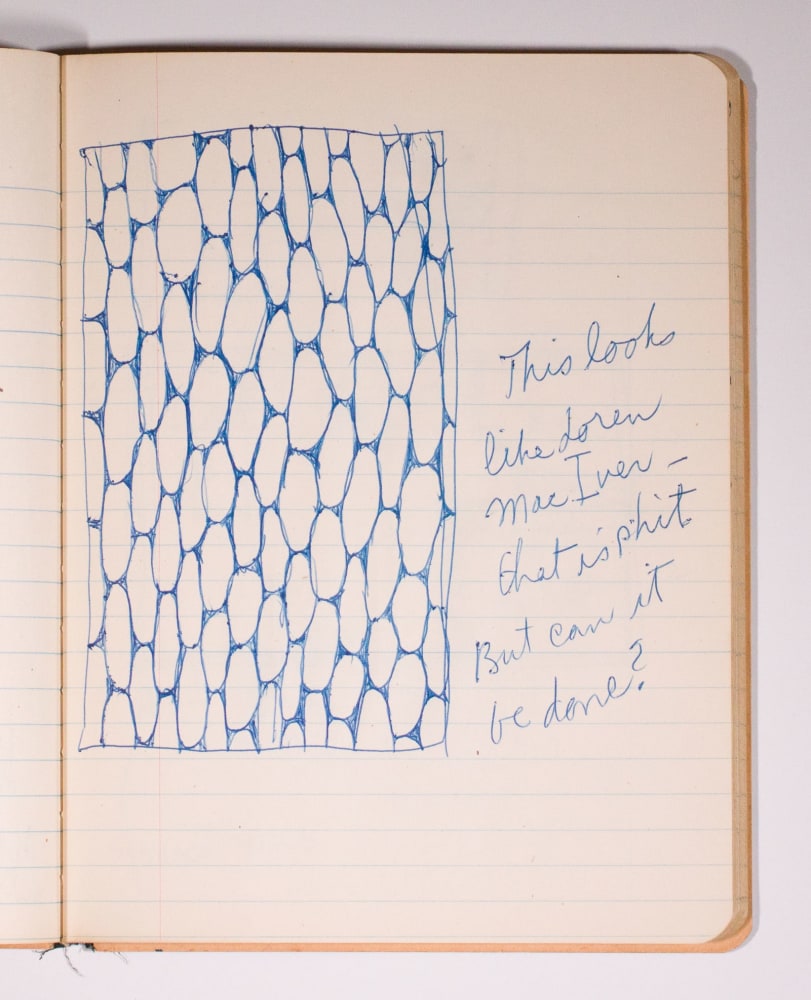 This looks
like Loren
Mac Iver –
that is phit.
But can it
be done?